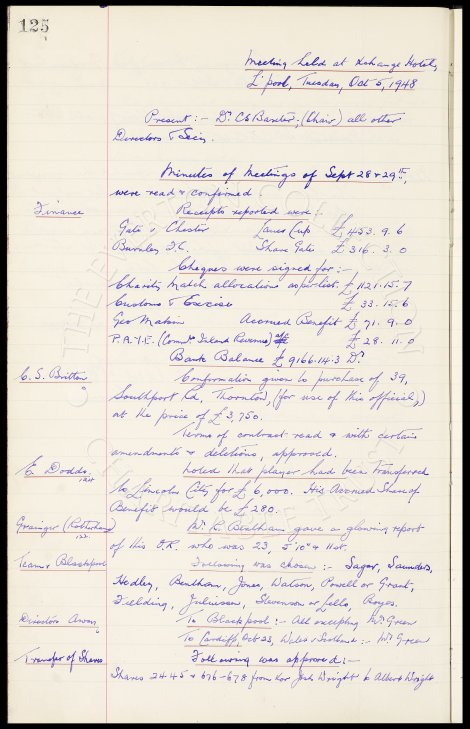 125
Meeting held at Xchange Hotel,
L'pool, Tuesday, Oct 5, 1948
Present :- Dr. C S Baxter, (Chair) all other
Directors & Secy.
Minutes of Meetings of Sept 28 & 29th,
were read & confirmed.
Finance
Receipts reported were :-
Gate v Chester Lancs Cup £453. 9. 6
Burnley F.C. Share Gate £316. 3. 0
Cheques were signed for :-
Charity Match allocations as per list £1121. 15. 7
Customs & Excise £ 33. 15. 6
Geo Makin Accrued Benefit £ 71. 9. 0
P.A.Y.E. (Commr Inland Revenue) £ 28. 11. 0
Bank Balance £9166-14-3 Dr
C. S. Britton
Confirmation given to purchase of 39,
Southport Rd, Thornton, (for use of this official,)
at the price of £3,750.
Terms of contract read & with certain
amendments & deletions, approved.
E. Dodds.
Noted that player had been transferred
to Lincoln City for £6,000. His Accrued Share of
Benefit would be £280.
Grainger (Rotherham)
Mr. R. gave a glowing report
of this O.R. who was 23, 5'10" & 11st.
Team v Blackpool
Following was chosen :- Sagar, Saunders,
Hedley, Bentham, Jones, Watson, Powell or Grant,
Fielding, Juliussen, Stevenson or Lello, Boyes.
Directors Away
To Blackpool :- All excepting Mr. Green
To Cardiff, Oct 23, Wales v Scotland :- Mr Green
Transfer of Shares
Following was approved :-
Shares 2445 & 676-678 from Xor Wright to Albert Wright